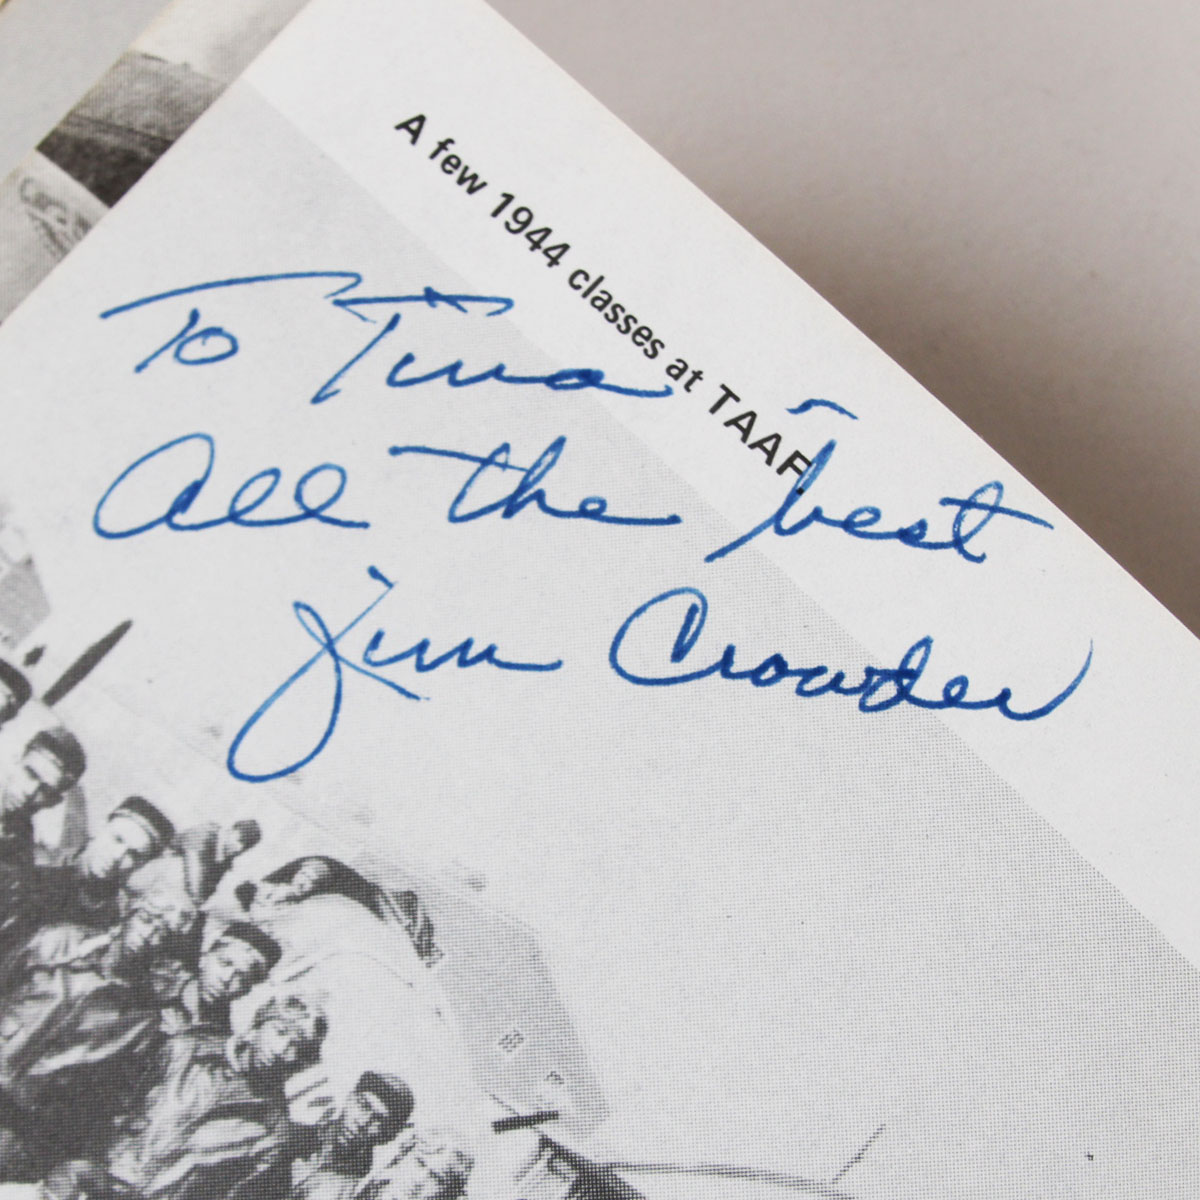 A few 1944 classes at TAAF.
To Tina -
All the best
Jim Crowder